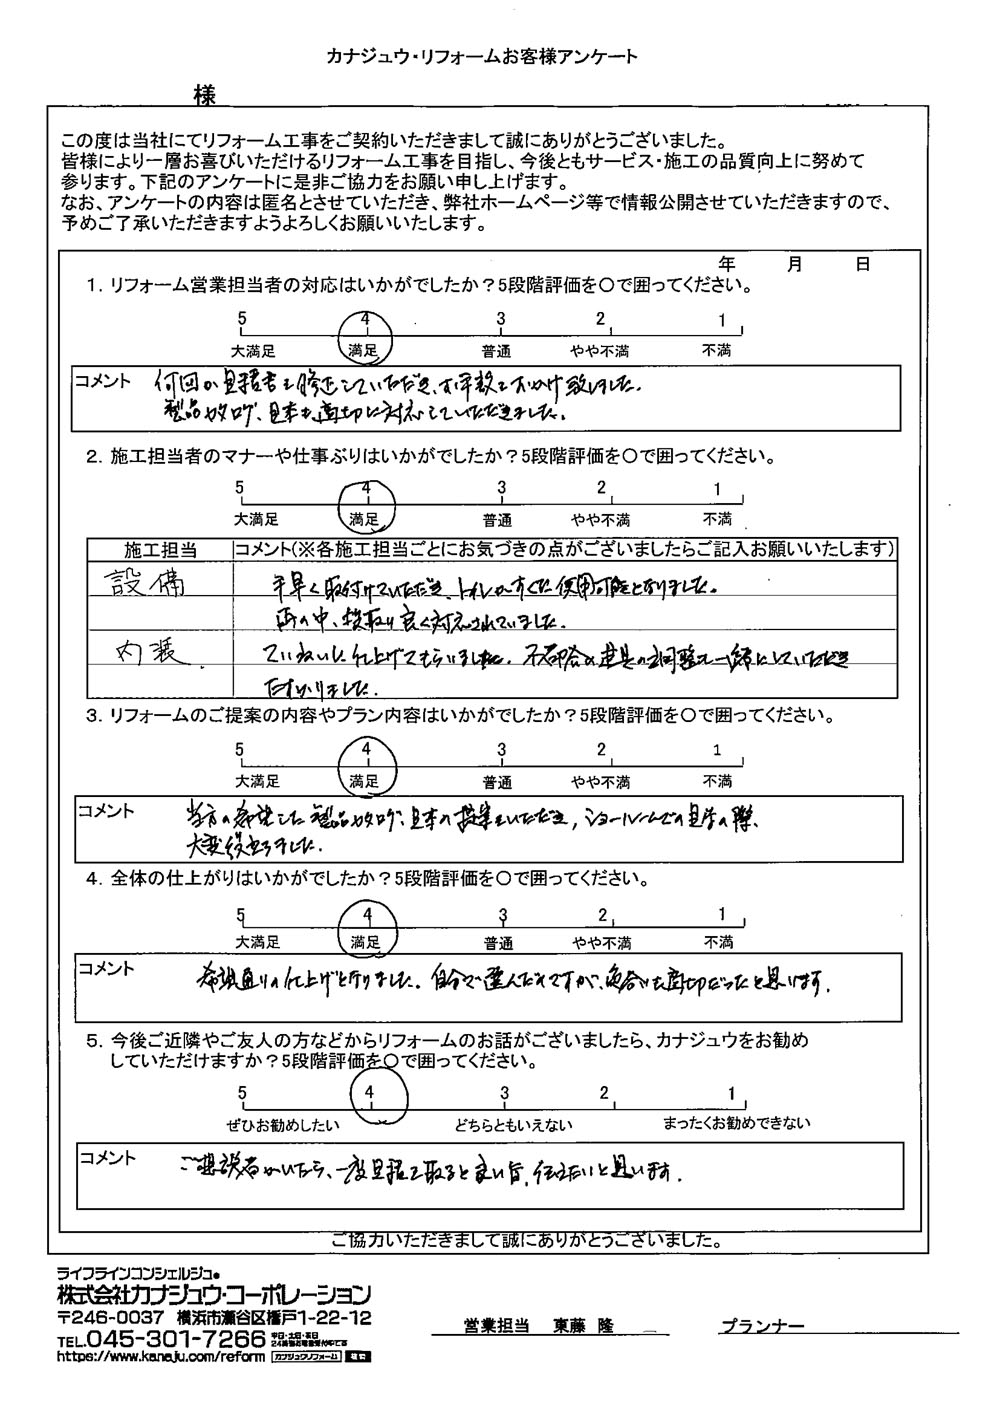 カナジュウ・リフォームお客様アンケート
様
この度は当社にてリフォーム工事をご契約いただきまして誠にありがとうございました。
皆様により一層お喜びいただけるリフォーム工事を目指し、今後ともサービス・施工の品質向上に努めて
参ります。下記のアンケートに是非ご協力をお願い申し上げます。
なお、アンケートの内容は匿名とさせていただき、弊社ホームページ等で情報公開させていただきますので、
予めご了承いただきますようよろしくお願いいたします。
年 月 日
1. リフォーム営業担当者の対応はいかがでしたか？5段階評価を〇で囲ってください。
5 4 3 2 1
大満足 満足 普通 やや不満 不満
コメント 何回か見積書を修正していただき、お手数をおかけ致しました。
製品カタログ、見本も適切に対応していただきました。
2. 施工担当者のマナーや仕事ぶりはいかがでしたか？5段階評価を〇で囲ってください。
5 4 3 2 1
大満足 満足 普通 やや不満 不満
施工担当 コメント(※各施工担当ごとにお気づきの点がございましたらご記入お願いいたします)
設備 手早く取付けていただき、トイレがすぐに使用可能となりました。
雨の中、段取り良く対応されていました。
内装 ていねいに仕上げてもらいました。不具合の建具の調整も一緒にしていただき
たすかりました。
3. リフォームのご提案の内容やプラン内容はいかがでしたか？5段階評価を〇で囲ってください。
5 4 3 2 1
大満足 満足 普通 やや不満 不満
コメント 当方の希望した製品カタログ、見本の提案をいただき、ショールームでの見学の際、
大変役立ちました。
4. 全体の仕上がりはいかがでしたか？5段階評価を〇で囲ってください。
5 4 3 2 1
大満足 満足 普通 やや不満 不満
コメント 希望通りの仕上げと行りました。自分で選んだんですが、色合いも適切だったと思います。
5. 今後ご近隣やご友人の方などからリフォームのお話がございましたら、カナジュウをお勧め
していただけますか？5段階評価を〇で囲ってください。
5 4 3 2 1
ぜひお勧めしたい どちらともいえない まったくお勧めできない
コメント ご相談者がいたら、一度見積を取ると良い旨、伝えたいと思います。
ご協力いただきまして誠にありがとうございました。
ライフラインコンシェルジュ
株式会社カナジュウ・コーポレーション
〒246-0037 横浜市瀬谷区橋戸1-22-12
TEL.045-301-7266 平日・土日・祝日
24時間お電話受付中です
https://www.kanaju.com/reform カナジュウリフォーム 検索
営業担当 東藤 隆
プランナー